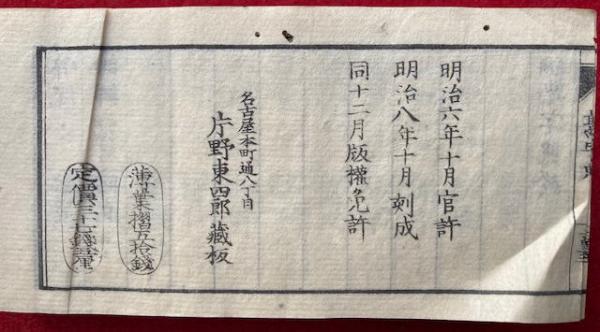 明治六年十月官許
明治八年十月刻成
同十二月版權免許
名古屋本町通八丁目
片野東四郎藏板
薄葉摺五拾錢
定價三十七錢五厘